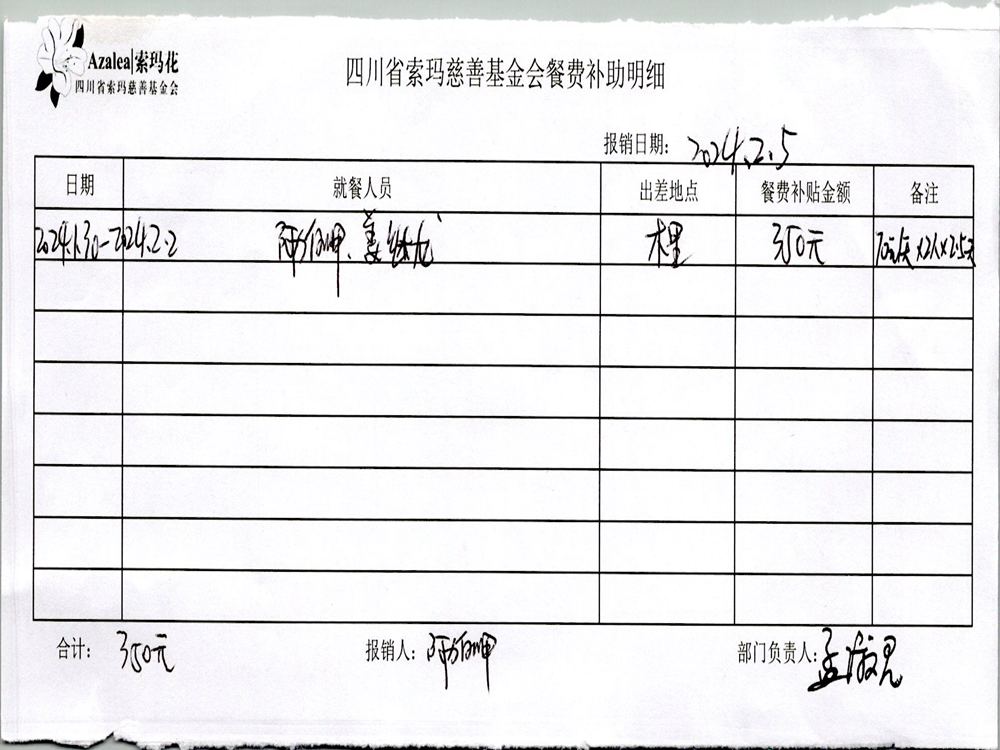 Azalea|索玛花
四川省索玛慈善基金会
四川省索玛慈善基金会餐费补助明细
报销日期: 2024.2.5
日期 就餐人员 出差地点 餐费补贴金额 备注
2024.1.30-2024.2.2 姜继龙 木里 350元 70元/天×2人×2.5天
合计: 350元 报销人: 部门负责人: